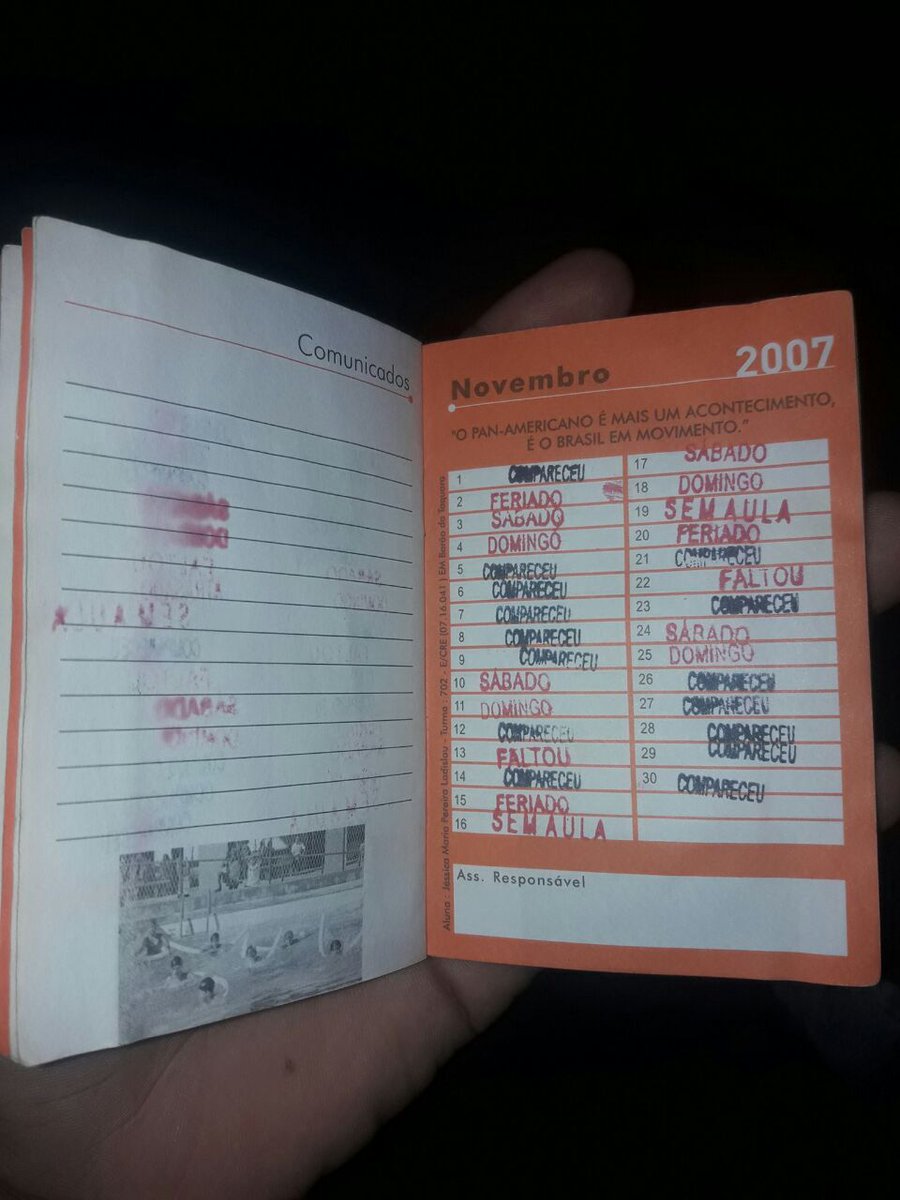 Comunicados
Novembro 2007
"O PAN-AMERICANO É MAIS UM ACONTECIMENTO,
É O BRASIL EM MOVIMENTO."
1 COMPARECEU
2 FERIADO
3 SÁBADO
4 DOMINGO
5 COMPARECEU
6 COMPARECEU
7 COMPARECEU
8 COMPARECEU
9 COMPARECEU
10 SÁBADO
11 DOMINGO
12 COMPARECEU
13 FALTOU
14 COMPARECEU
15 FERIADO
16 SEM AULA
17 SÁBADO
18 DOMINGO
19 SEM AULA
20 FERIADO
21 COMPARECEU
22 FALTOU
23 COMPARECEU
24 SÁBADO
25 DOMINGO
26 COMPARECEU
27 COMPARECEU
28 COMPARECEU
29 COMPARECEU
30 COMPARECEU
Ass. Responsável
Aluna : Jessica Maria Pereira Ladislau - Turma : 702 - E/CRE (07.16.041) EM Barão da Taquara